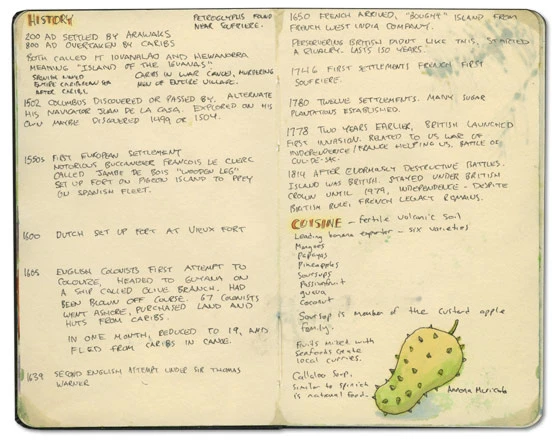 HISTORY
PETROGLYPHS FOUND
NEAR SUFRIERE.
200 AD SETTLED BY ARAWAKS
800 AD OVERTAKEN BY CARIBS
BOTH CALLED IT IOUANALAO AND HEWANORRA
MEANING "ISLAND OF THE IGUANAS"
SPANISH NAMED
ENTIRE CARIBBEAN
AFTER CARIB.
CARIBS IN WAR CANOES, MURDERING
MEN OF ENTIRE VILLAGE.
1502 COLUMBUS DISCOVERED OR PASSED BY. ALTERNATE
HIS NAVIGATOR JUAN DE LA CASA. EXPLORED ON HIS
OWN MAYBE DISCOVERED 1499 OR 1504.
1550s FIRST EUROPEAN SETTLEMENT
NOTORIOUS BUCCANEER FRANCOIS LE CLERC
CALLED JAMBE DE BOIS "WOODEN LEG"
SET UP FORT ON PIGEON ISLAND TO PREY
ON SPANISH FLEET.
1600 DUTCH SET UP FORT AT VIEUX FORT
1605 ENGLISH COLONISTS FIRST ATTEMPT TO
COLONIZE, HEADED TO GUYANA ON
A SHIP CALLED OLIVE BRANCH. HAD
BEEN BLOWN OFF COURSE. 67 COLONISTS
WENT ASHORE, PURCHASED LAND AND
HUTS FROM CARIBS.
IN ONE MONTH, REDUCED TO 19, AND
FLED FROM CARIBS IN CANOE.
1639 SECOND ENGLISH ATTEMPT UNDER SIR THOMAS
WARNER
1650 FRENCH ARRIVED, "BOUGHT" ISLAND FROM
FRENCH WEST INDIA COMPANY.
PERSEVERING BRITISH DIDNT LIKE THIS, STARTED
A RIVALRY. LASTS 150 YEARS.
1746 FIRST SETTLEMENTS FRENCH FIRST
SOUFRIERE.
1780 TWELVE SETTLEMENTS. MANY SUGAR
PLANTATIONS ESTABLISHED.
1778 TWO YEARS EARLIER, BRITISH LAUNCHED
FIRST INVASION. RELATED TO US WAR OF
INDEPENDENCE/FRANCE HELPING US. BATTLE OF
CUL-DE-SAC.
1814 AFTER ENORMOUSLY DESTRUCTIVE BATTLES.
ISLAND WAS BRITISH. STAYED UNDER BRITISH
CROWN UNTIL 1979, INDEPENDENCE - DESPITE
BRITISH RULE, FRENCH LEGACY REMAINS.
CUISINE - fertile volcanic soil
Leading banana exporter - six varieties
Mangoes
Papayas
Pineapples
Soursops
Passionfruit
guava
Coconut
Soursop is member of the custard apple
family.
Fruits mixed with
seafoods create
local curries.
Callaloo Soup.
Similar to spinich
is national food.
Annona Muricata